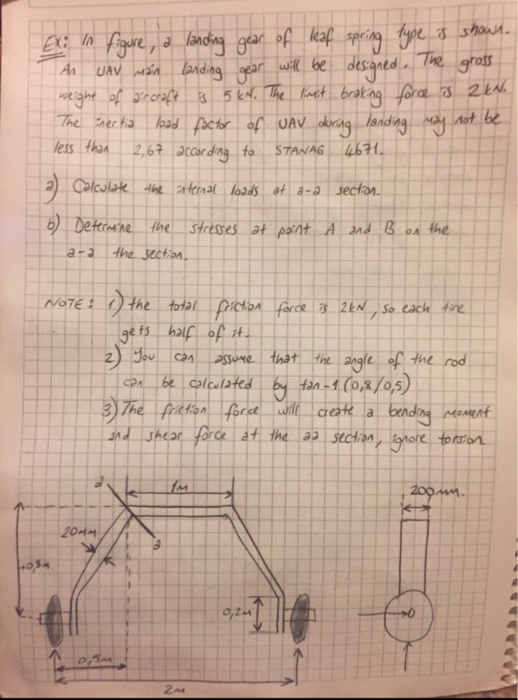 Ex: In figure, a landing gear of leaf spring type is shown.
An UAV main landing gear will be designed. The gross
weight of aircraft is 5 kN. The limit braking force is 2 kN.
The inertia load factor of UAV during landing may not be
less than 2,67 according to STANAG 4671.
a) Calculate the internal loads at a-a section.
b) Determine the stresses at point A and B on the
a-a the section.
NOTE: 1) the total friction force is 2kN, so each tire
gets half of it.
2) You can assume that the angle of the rod
can be calculated by tan-1 (0,8/0,5)
3) The friction force will create a bending moment
and shear force at the aa section, ignore torsion
a
1m
200mm.
20mm
a
0,8m
0,2m
0,5m
2m